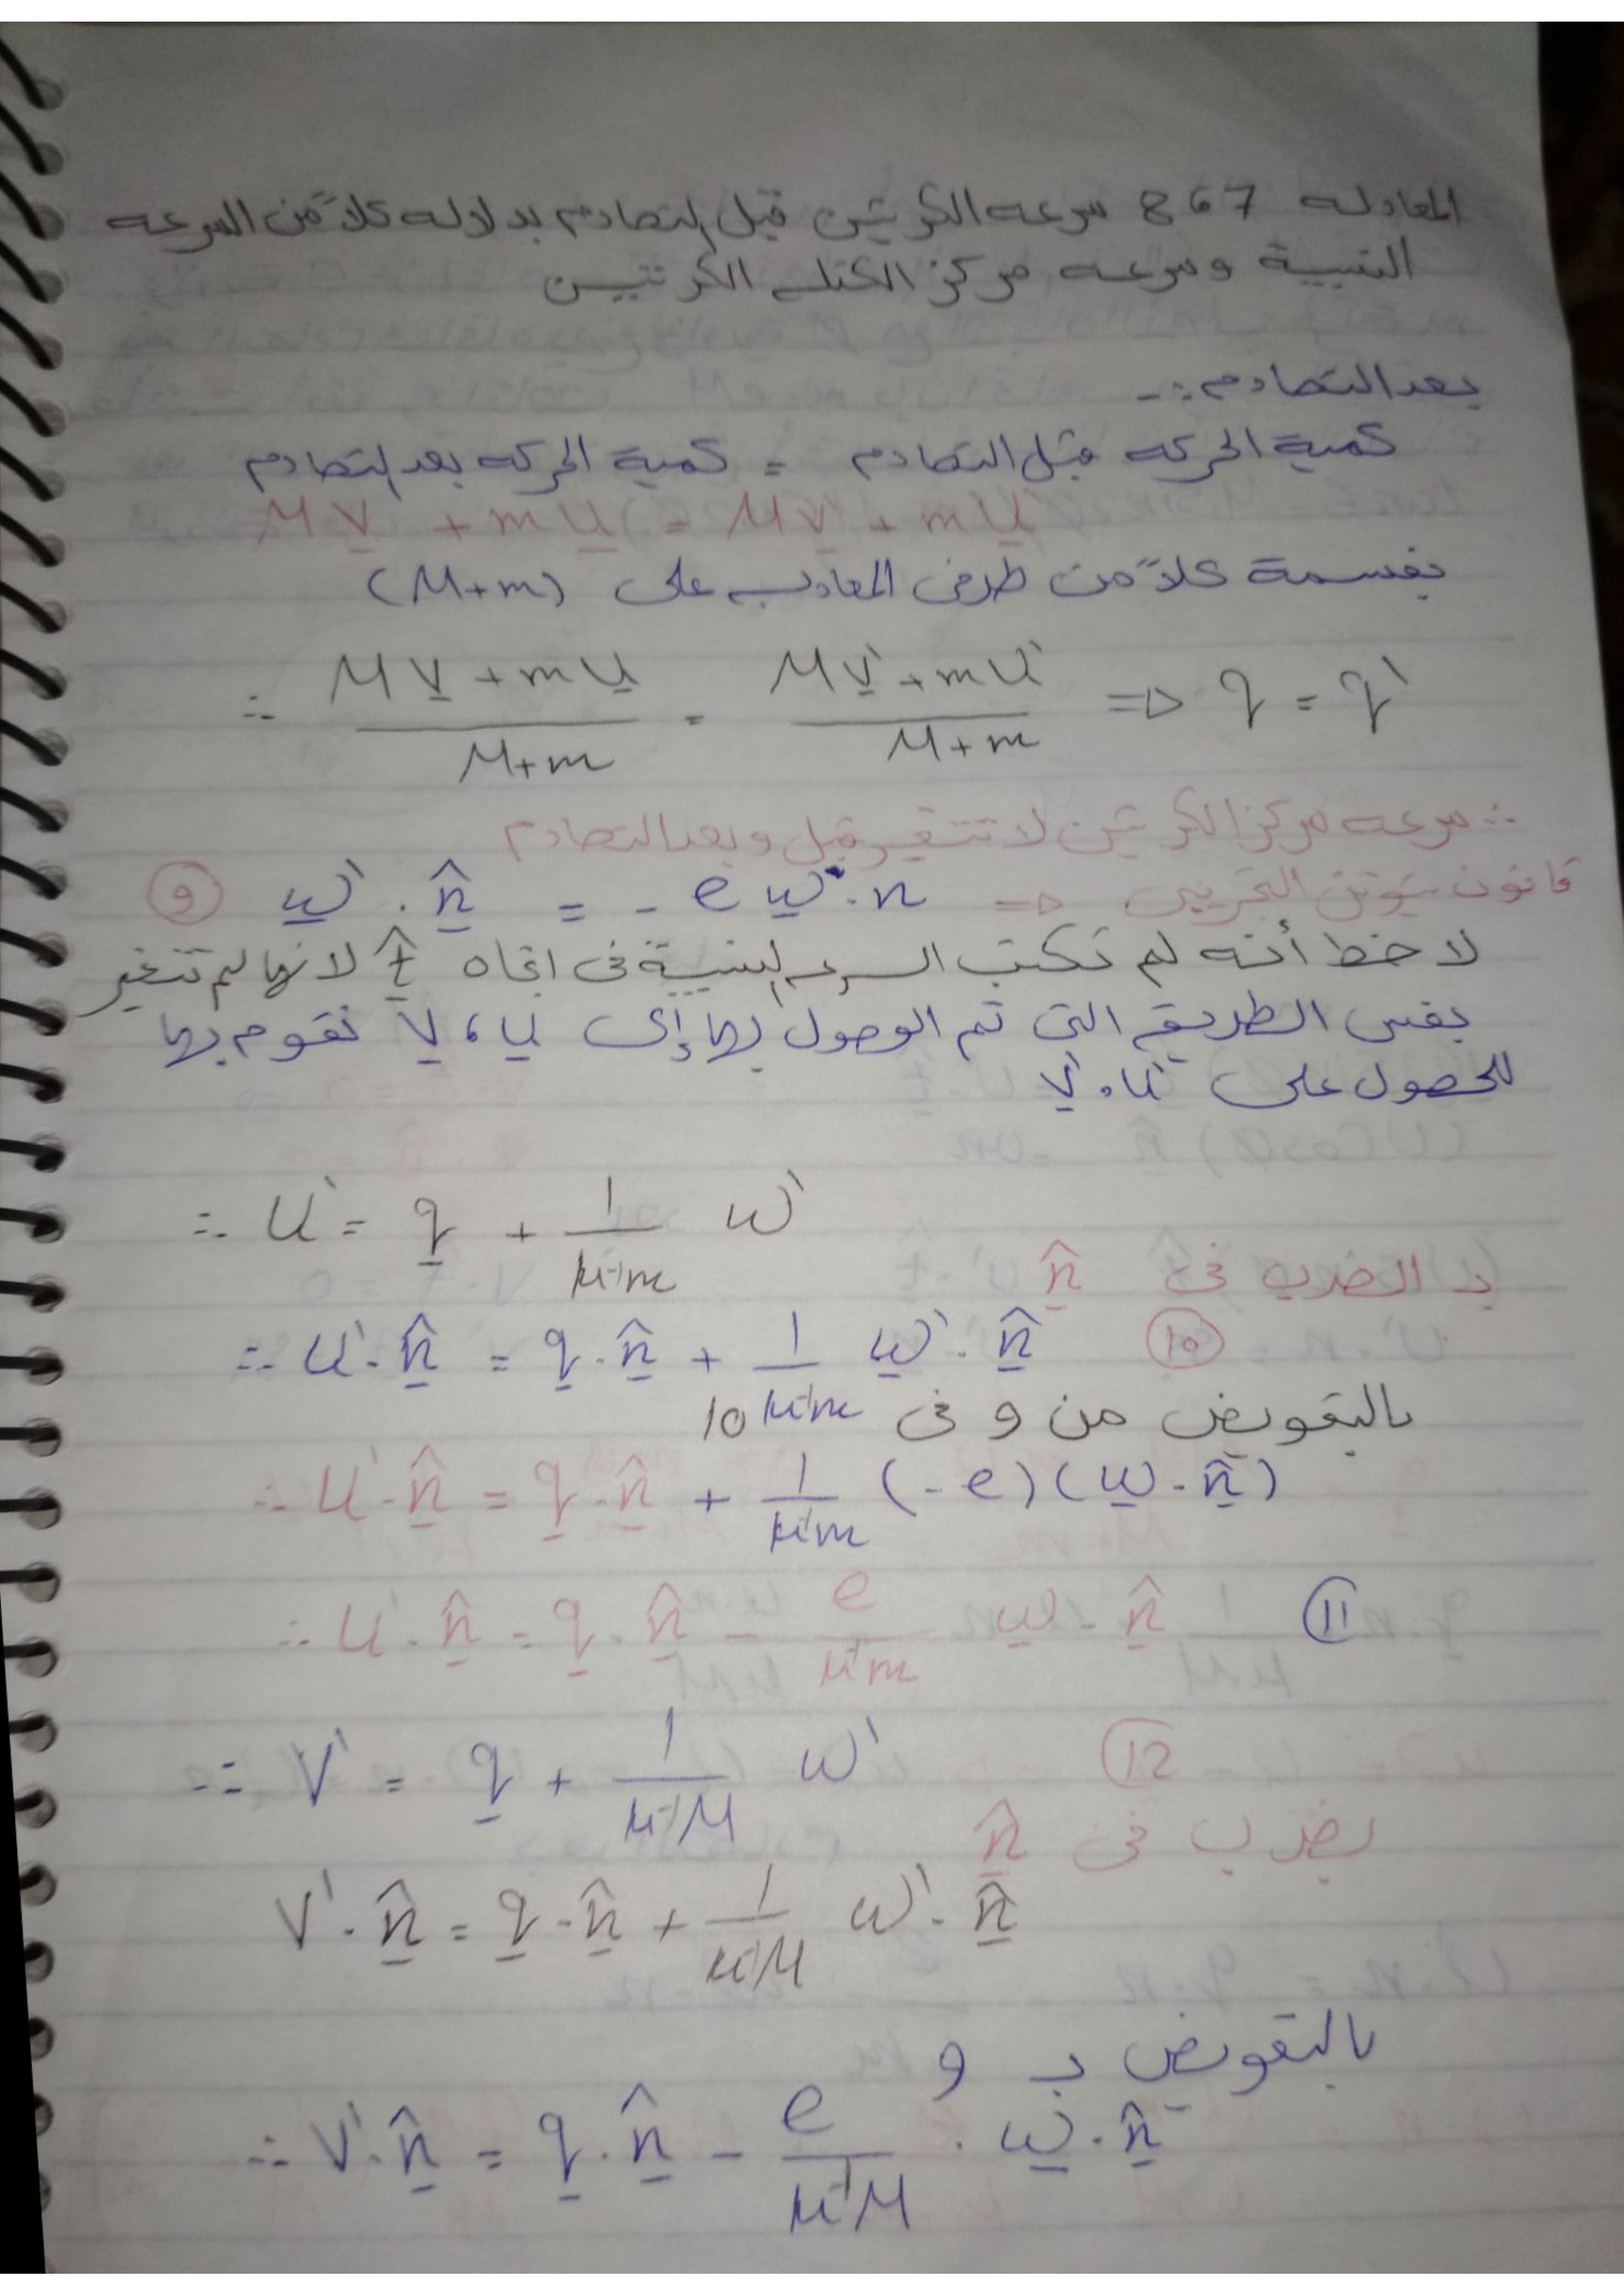 المعادله 7 6 8 سرعه الكرتين قبل التصادم بدلاله كلاً من السرعه
النسبية وسرعه مركز الكتله الكرتين
بعد التصادم :-
كمية الحركه قبل التصادم = كمية الحركه بعد التصادم
M V + m U = M V' + m U'
بقسمة كلاً من طرفى المعادله على (M+m)
∴ (M V + m U)/(M+m) = (M V' + m U')/(M+m) => q = q'
∴ سرعه مركز الكرتين لا تتغير قبل وبعد التصادم
قانون نيوتن التجريبى => ω' . n̂ = - e ω . n (9)
لاحظ أنه لم نكتب السرعه النسبية فى اتجاه t̂ لانها لم تتغير
بنفس الطريقه التى تم الوصول بها إلى U ، V نقوم بها
للحصول على U' ، V'
∴ U' = q + 1/(μ⁻¹m) ω'
بـ الضرب فى n̂
∴ U' . n̂ = q . n̂ + 1/(μ⁻¹m) ω' . n̂ (10)
بالتعويض من 9 فى 10
∴ U' . n̂ = q . n̂ + 1/(μ⁻¹m) (-e)(ω . n̂)
∴ U' . n̂ = q . n̂ - e/(μ⁻¹m) ω . n̂ (11)
∴ V' = q + 1/(μ⁻¹M) ω' (12)
بضرب فى n̂
V' . n̂ = q . n̂ + 1/(μ⁻¹M) ω' . n̂
بالتعويض بـ 9
∴ V' . n̂ = q . n̂ - e/(μ⁻¹M) . ω . n̂